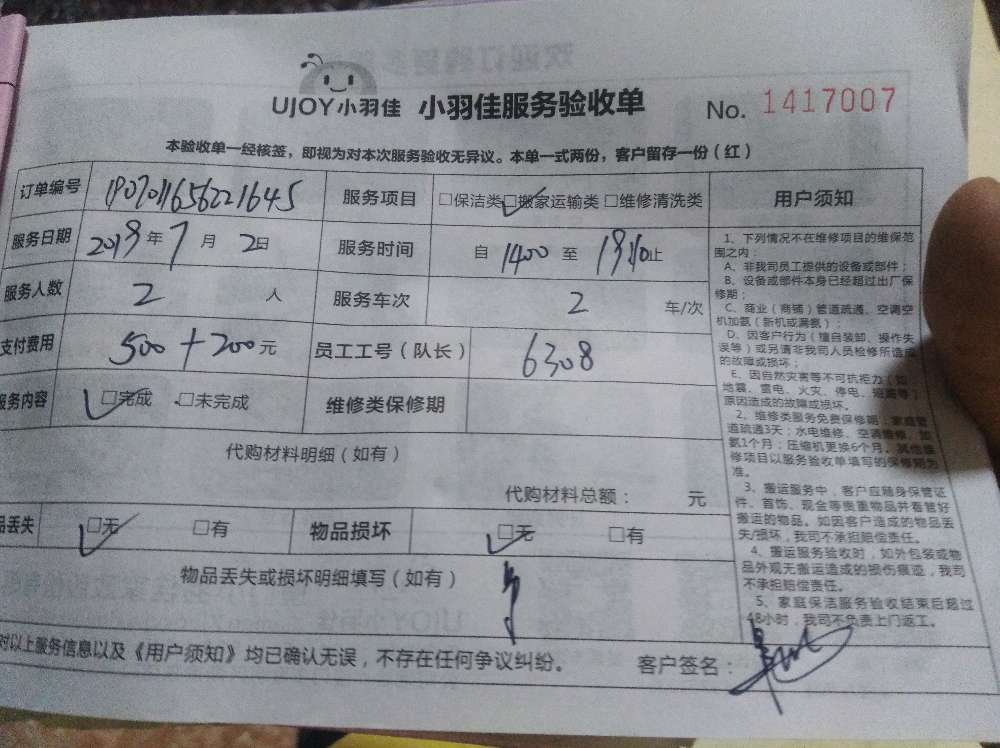 UJOY小羽佳 小羽佳服务验收单 No. 1417007
本验收单一经核签，即视为对本次服务验收无异议。本单一式两份，客户留存一份（红）
订单编号 1907011656221645 服务项目 □保洁类□搬家运输类□维修清洗类
服务日期 2019年7月2日 服务时间 自1400至1910止
服务人数 2人 服务车次 2车/次
支付费用 500+200元 员工工号（队长） 6308
服务内容 □完成 □未完成 维修类保修期
代购材料明细（如有）
代购材料总额： 元
品丢失 □无 □有 物品损坏 □无 □有
物品丢失或损坏明细填写（如有）
对以上服务信息以及《用户须知》均已确认无误，不存在任何争议纠纷。 客户签名：
用户须知
1、下列情况不在维修项目的维保范
围之内：
A、非我司员工提供的设备或部件；
B、设备或部件本身已经超过出厂保
修期；
C、商业（商铺）管道疏通、空调空
机加氨（新机或漏氨）；
D、因客户行为（擅自装卸、操作失
误等）或另请非我司人员检修所造成
的故障或损坏；
E、因自然灾害等不可抗拒力（如
地震、雷电、火灾、停电、短路等）
原因造成的故障或损坏。
2、维修类服务免费保修期：家庭管
道疏通3天；水电维修、空调维修、加
氨1个月；压缩机更换6个月。其他维
修项目以服务验收单填写的保修期为
准。
3、搬运服务中，客户应随身保管证
件、首饰、现金等贵重物品并看管好
搬运的物品。如因客户造成的物品丢
失/损坏，我司不承担赔偿责任。
4、搬运服务验收时，如外包装或物
品外观无搬运造成的损伤痕迹，我司
不承担赔偿责任。
5、家庭保洁服务验收结束后超过
48小时，我司不负责上门返工。